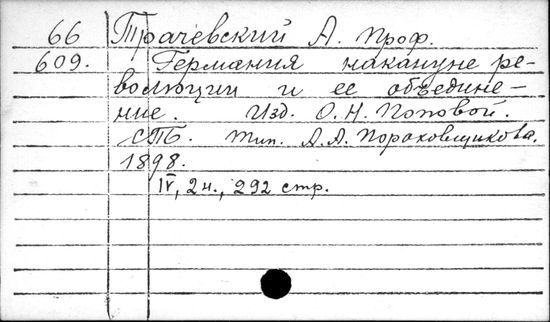 66 Трачевский А. Проф.
609. Германия накануне ре-
волюции и ее объедине-
ние. Изд. О.Н. Поповой.
СПБ. Тип. А.А. Пороховщикова.
1898.
IV, 2н., 292 стр.